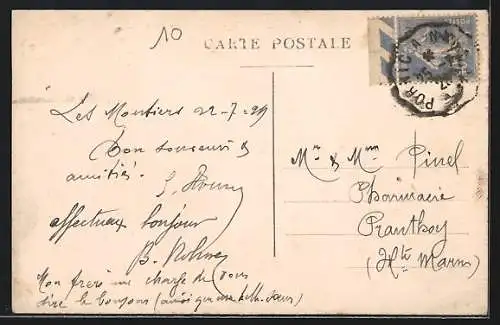 10
CARTE POSTALE
Les Moutiers 22-7-29
Bon souvenir &
amitiés.
affectueux bonjour
Mr & Mme Pinel
Pharmacie
Prauthoy
(Hte Marne)
Mon frère me charge de vous
dire le bonjour (ainsi que ma belle-sœur)